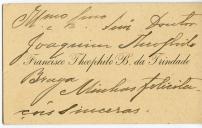 Illmo Exmo Snr Doutor
Joaquim Theophilo
Francisco Theophilo B. da Trindade
Braga Minhas felicita
ções sinceras.